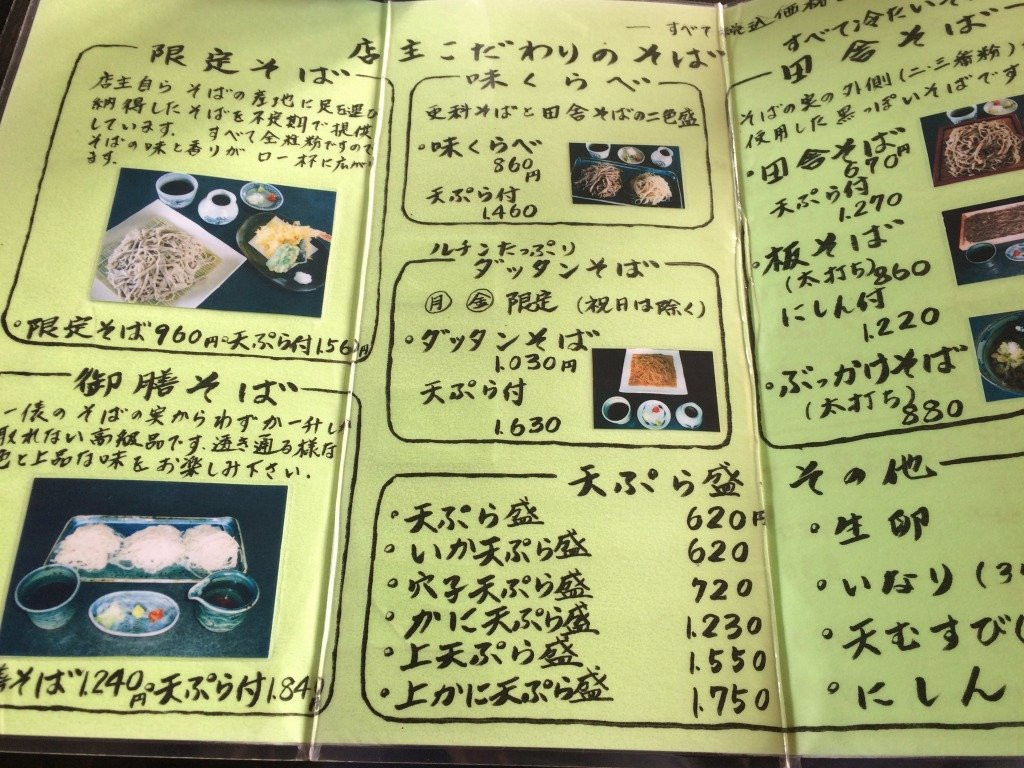 店主こだわりのそば
一 すべて税込価格
限定そば
店主自ら そばの産地に足を運び
納得したそばを不定期で提供
しています. すべて全粒粉ですので
そばの味と香りが 口一杯に広がり
ます.
限定そば960円 天ぷら付1.560円
御膳そば
一俵のそばの実からわずか一升し
取れない高級品です.透き通る様な
色と上品な味をお楽しみ下さい.
膳そば1.240円 天ぷら付1.840
味くらべ
更科そばと田舎そばの二色盛
味くらべ
860円
天ぷら付
1.460
ルチンたっぷり
ダッタンそば
月 金 限定 (祝日は除く)
ダッタンそば
1.030円
天ぷら付
1.630
天ぷら盛
天ぷら盛 620円
いか天ぷら盛 620
穴子天ぷら盛 720
かに天ぷら盛 1.230
上天ぷら盛 1.550
上かに天ぷら盛 1.750
すべて冷たいそ
田舎そば
そばの実の外側(二.三番粉)
使用した黒っぽいそばです
田舎そば
670円
天ぷら付
1.270
板そば
(太打ち)860
にしん付
1.220
ぶっかけそば
(太打ち)880
その他
生卵
いなり(3
天むすび(
にしん